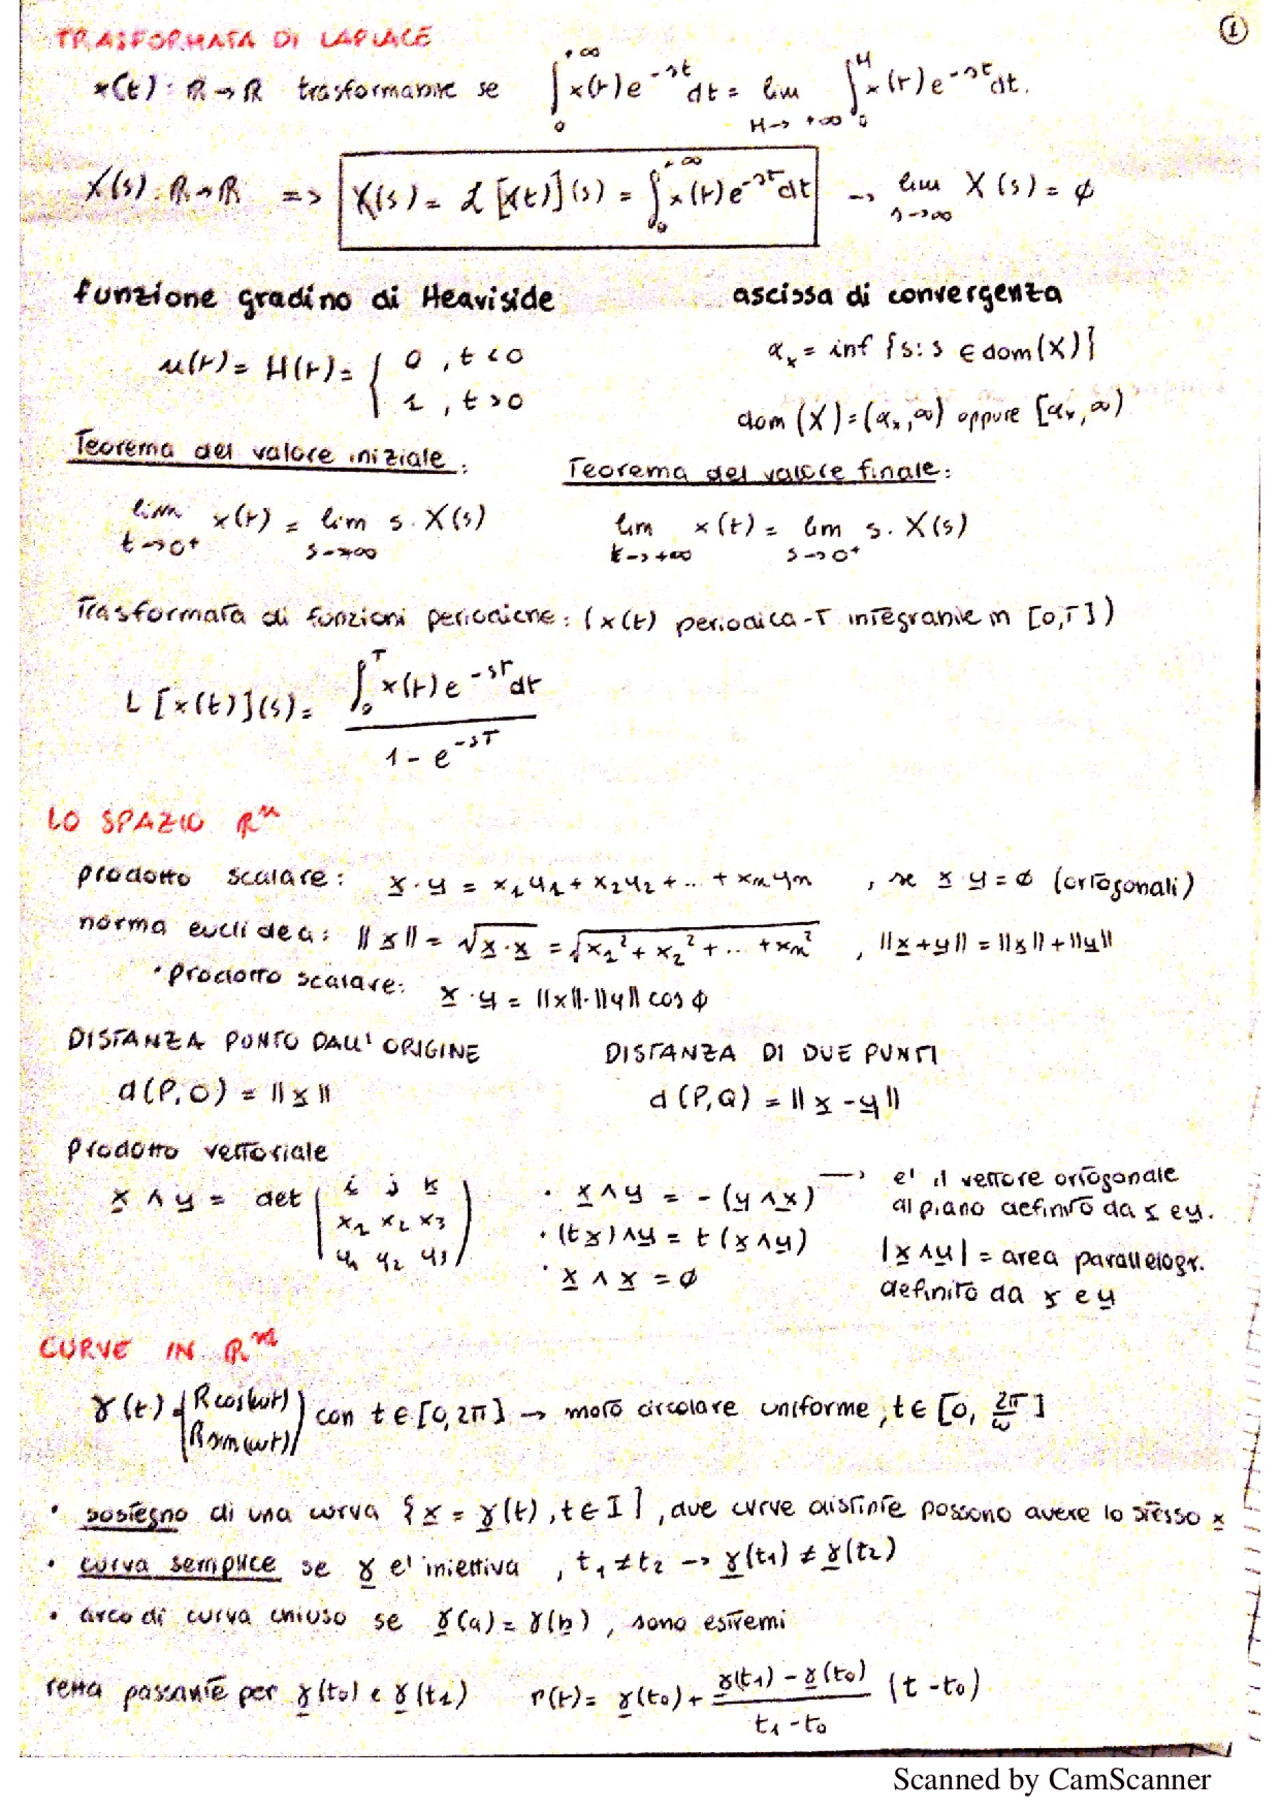 TRASFORMATA DI LAPLACE
①
x(t): ℝ→ℝ trasformabile se ∫₀^{+∞} x(t)e^{-st}dt = lim_{M→+∞} ∫₀^M x(t)e^{-st}dt.
X(s): ℝ→ℝ => X(s) = ℒ[x(t)](s) = ∫₀^{+∞} x(t)e^{-st}dt → lim_{s→∞} X(s) = ∅
funzione gradino di Heaviside
ascissa di convergenza
u(t) = H(t) = { 0, t<0
1, t>0
α_x = inf {s: s ∈ dom(X)}
dom(X) = (α_x, ∞) oppure [α_x, ∞)
Teorema del valore iniziale:
Teorema del valore finale:
lim_{t→0⁺} x(t) = lim_{s→+∞} s·X(s)
lim_{t→+∞} x(t) = lim_{s→0⁺} s·X(s)
Trasformata di funzioni periodiche: (x(t) periodica-T integrabile in [0,T])
L[x(t)](s) = ∫₀^T x(t)e^{-st}dt / 1 - e^{-sT}
LO SPAZIO ℝⁿ
prodotto scalare: x·y = x₁y₁ + x₂y₂ + … + xₙyₙ , se x·y = ∅ (ortogonali)
norma euclidea: ||x|| = √x·x = √x₁² + x₂² + … + xₙ² , ||x+y|| = ||x|| + ||y||
• prodotto scalare: x·y = ||x||·||y|| cos φ
DISTANZA PUNTO DALL' ORIGINE
DISTANZA DI DUE PUNTI
d(P,O) = ||x||
d(P,Q) = ||x-y||
prodotto vettoriale
x ∧ y = det ( i j k
x₁ x₂ x₃
y₁ y₂ y₃ )
• x∧y = -(y∧x)
• (tx)∧y = t(x∧y)
• x ∧ x = ∅
→ e' il vettore ortogonale
al piano definito da x e y.
|x∧y| = area parallelogr.
definito da x e y
CURVE IN ℝⁿ
γ(t) = ( R cos(ωt)
R sin(ωt) ) con t ∈ [0, 2π] → moto circolare uniforme, t ∈ [0, 2π/ω]
• sostegno di una curva {x = γ(t), t ∈ I}, due curve distinte possono avere lo stesso x
• curva semplice se γ e' iniettiva , t₁ ≠ t₂ → γ(t₁) ≠ γ(t₂)
• arco di curva chiuso se γ(a) = γ(b), sono estremi
retta passante per γ(t₀) e γ(t₁) r(t) = γ(t₀) + γ(t₁) - γ(t₀) / t₁ - t₀ (t - t₀)
Scanned by CamScanner